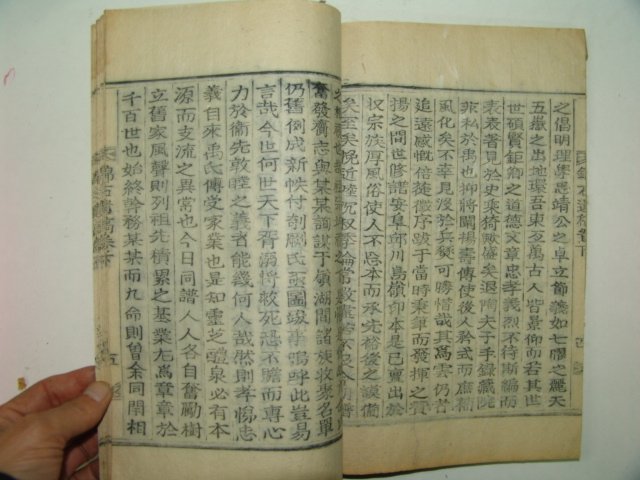 之倡明理學思靖公之卓立節義如七膠之麗天
五嶽之出地環吾東丕萬古人皆景仰而若其世
世碩賢鉅卿之道德文章忠孝義烈不待斯編而
表表著見於史乘猗歟盛矣退陶夫子手錄藏院
非私於禹也抑將闡揚壽傳使後人矜式而席稍
風化矣不幸見沒於兵燹可勝惜哉其為雲仍
追遠感慨倍徙徵序跋于當時秉筆而發揮之賁
揚之間世修譜安阜邱川島嶺仰本是已亶出於
收宗族厚風俗使人不忘本而承先裕後之謨備
矣至矣
奮發齎志與某某詢謀于嶺湖間諸族收衆名單
仍舊例成新帙付剞劂氏亟圖竣事嗚呼此豈易
言哉今世何世天下胥溺將救死恐不贍而專心
力於衛先敦睦之義者能幾何人哉然則孝悌忠
義自來禹氏傳受家業也是知靈芝醴泉必有本
源而支流之異常也今日同譜人人各自奮勵樹
立舊家風聲則列祖先積累之基業尤為章章於
千百世也始終幹務某某而九命則曾余同閈相